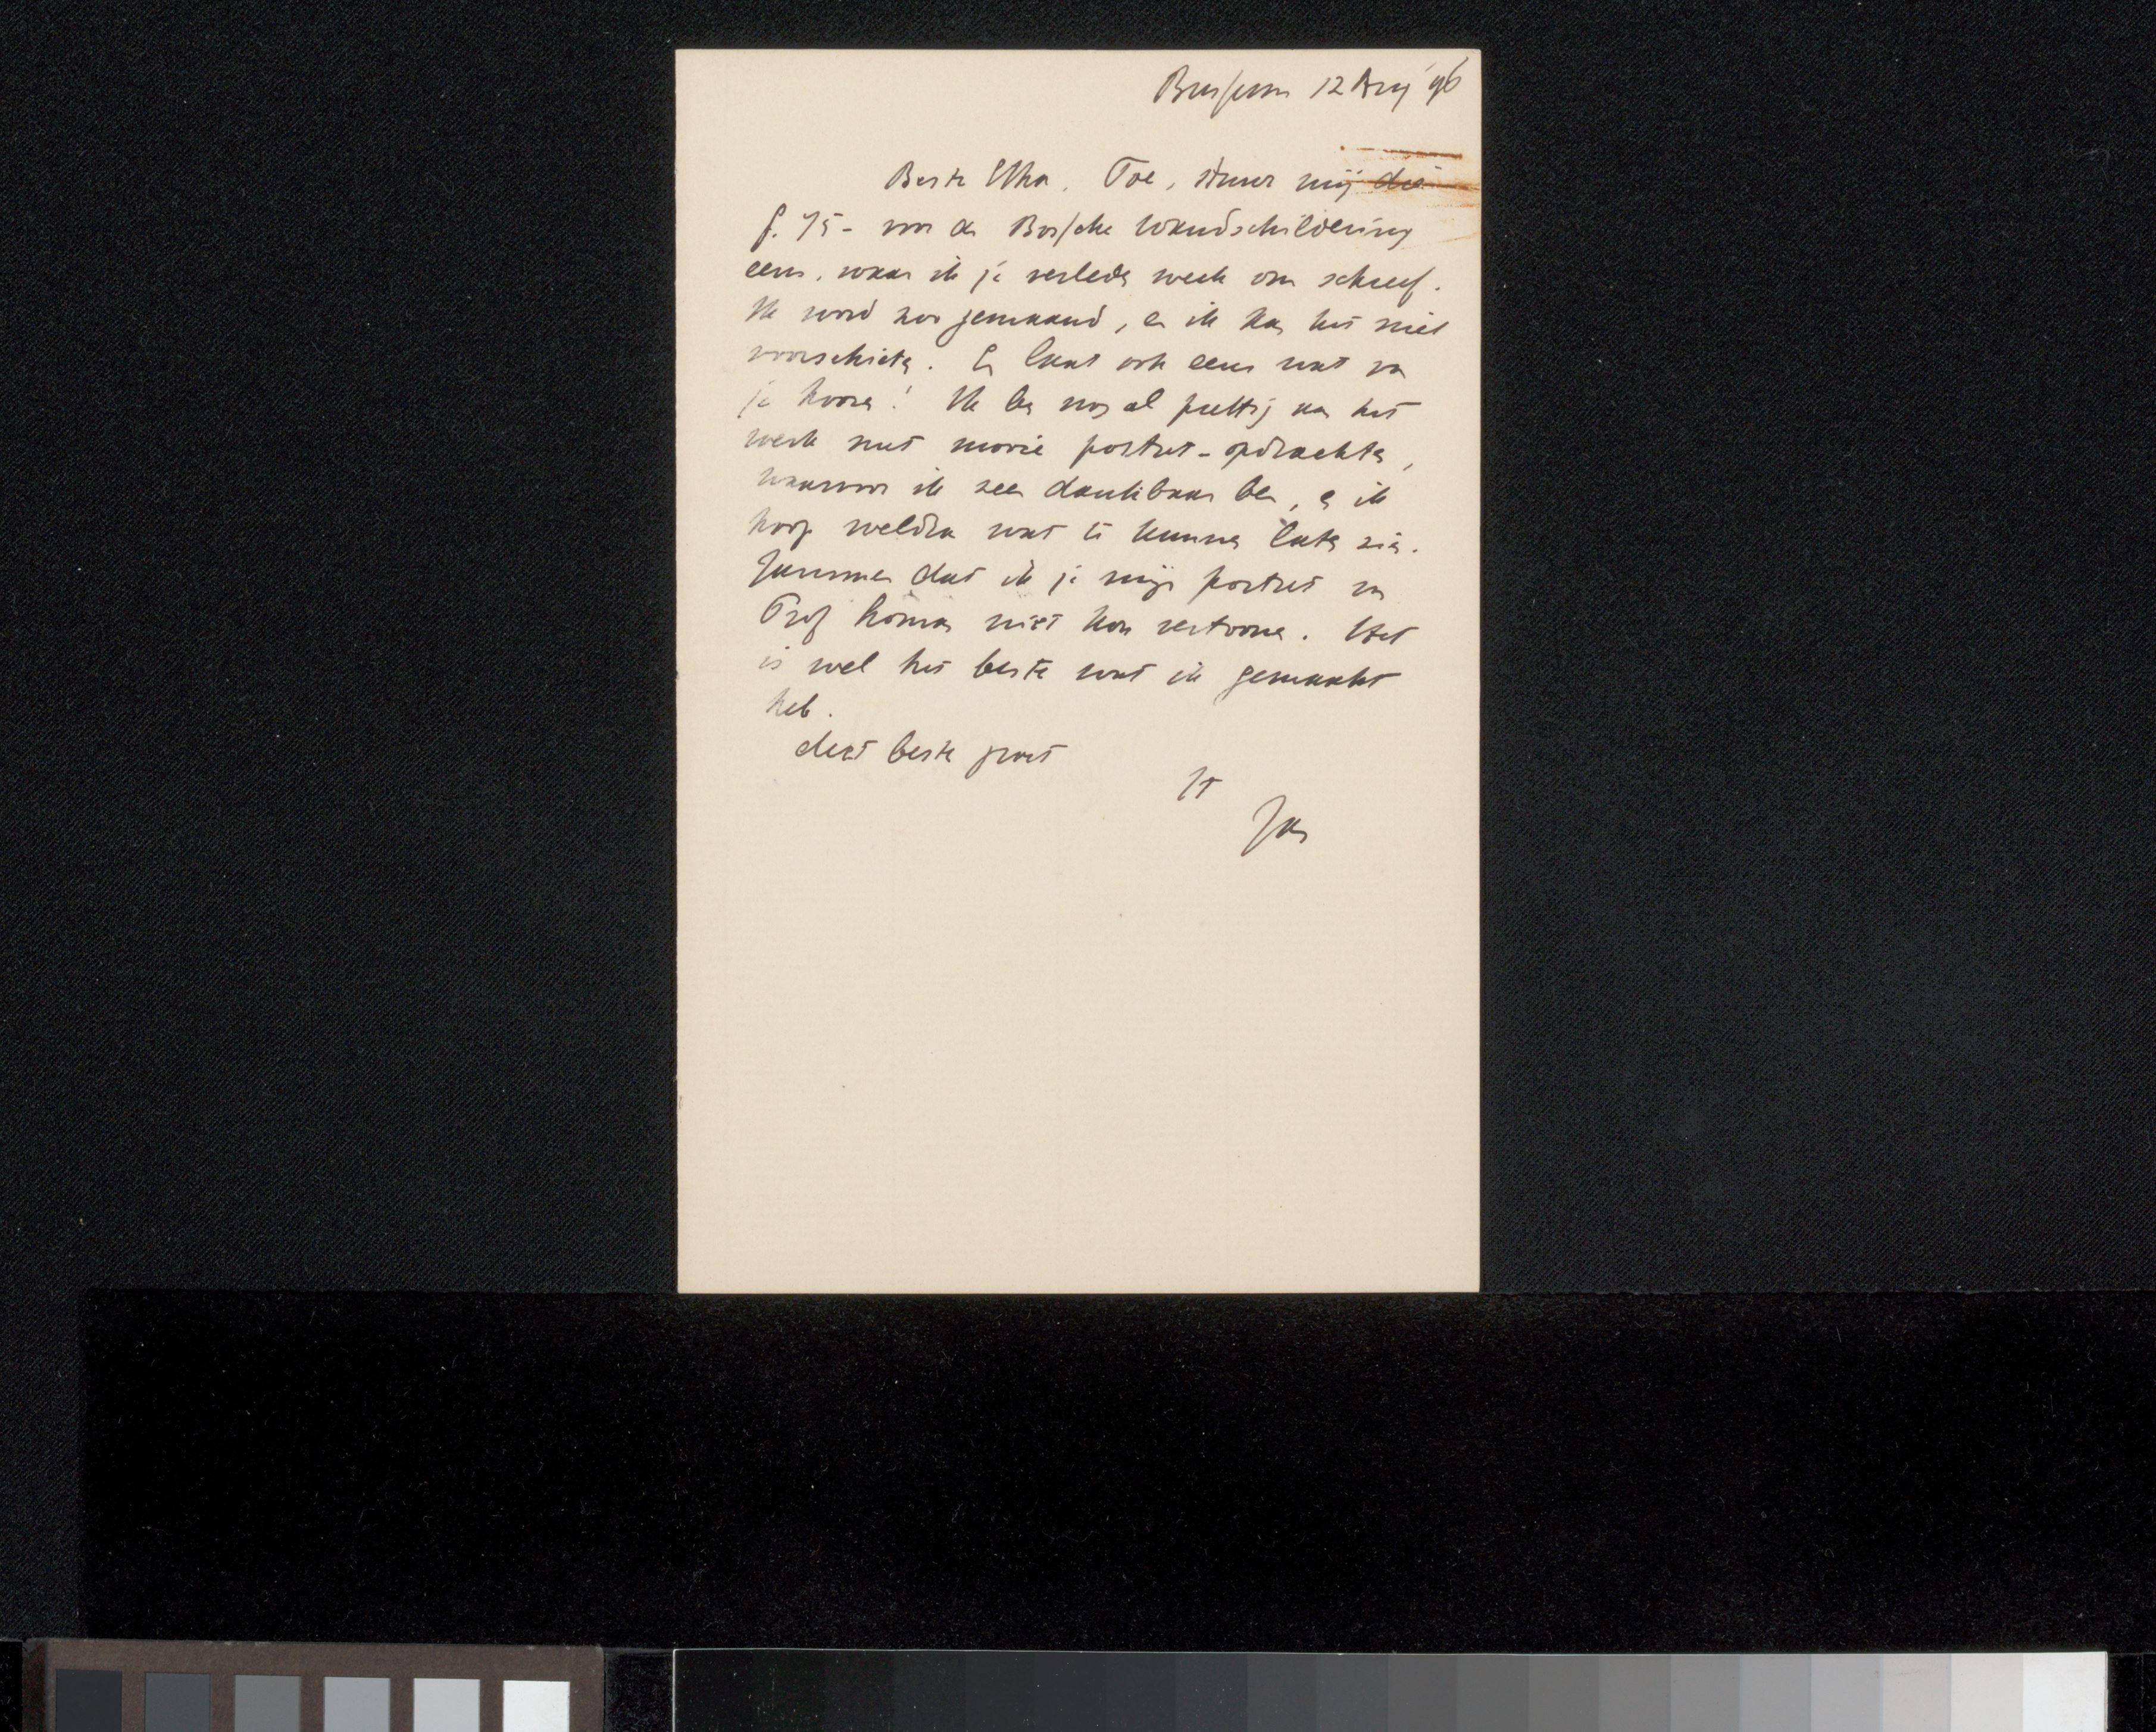 Bussum 12 Aug '96
Beste Toe, stuur mij die
f. 75 - voor de Bossche Wandschildering
eens, waar ik je verleden week om schreef.
Ik word gemaand, en ik kan het niet
voorschieten. En laat ook eens wat van
je hooren! Ik ben nog al prettig aan het
werk met mooie portret-opdrachten,
waarvoor ik zeer dankbaar ben, en ik
hoop weldra wat te kunnen laten zien.
Jammer dat ik je mijn portret van
Prof niet kon vertoonen. Het
is wel het beste wat ik gemaakt
heb.
Met beste groet
tt
Jan